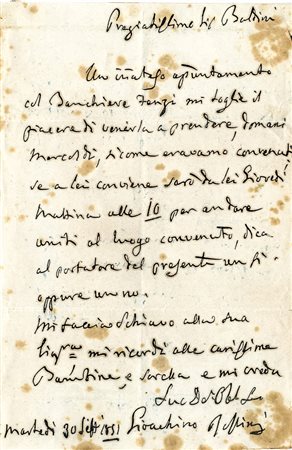 Pregiatissimo Sig Baldini
Un inatteso apuntamento
col Banchiere Fenzi mi toglie il
piacere di venirla a prendere, domani
Mercoldi, sicome eravamo convenuti
se a lei conviene sarò da lei Giovedi
Mattina alle 10 per andare
uniti al luogo convenuto, dica
al portatore del presente un si
oppure un no.
mi faccia schiavo alla sua
Sigra mi ricordi alle carissime
Bambine, e Sorella e mi creda
Suo
Martedi 30 Sett 1851 Gioachino Rossini